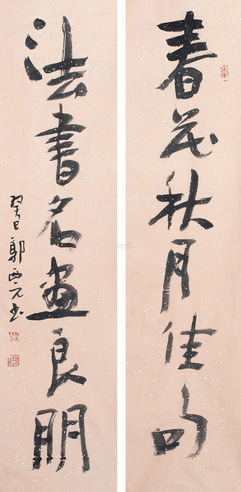 春花秋月佳句
法書名畫良朋
癸巳郭西元书